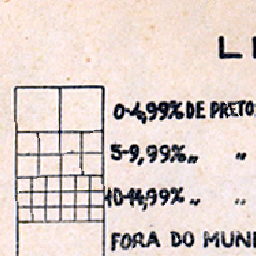 L
0-4,99% DE PRETO
5-9,99% „ „
10-14,99% „ „
FORA DO MUNI